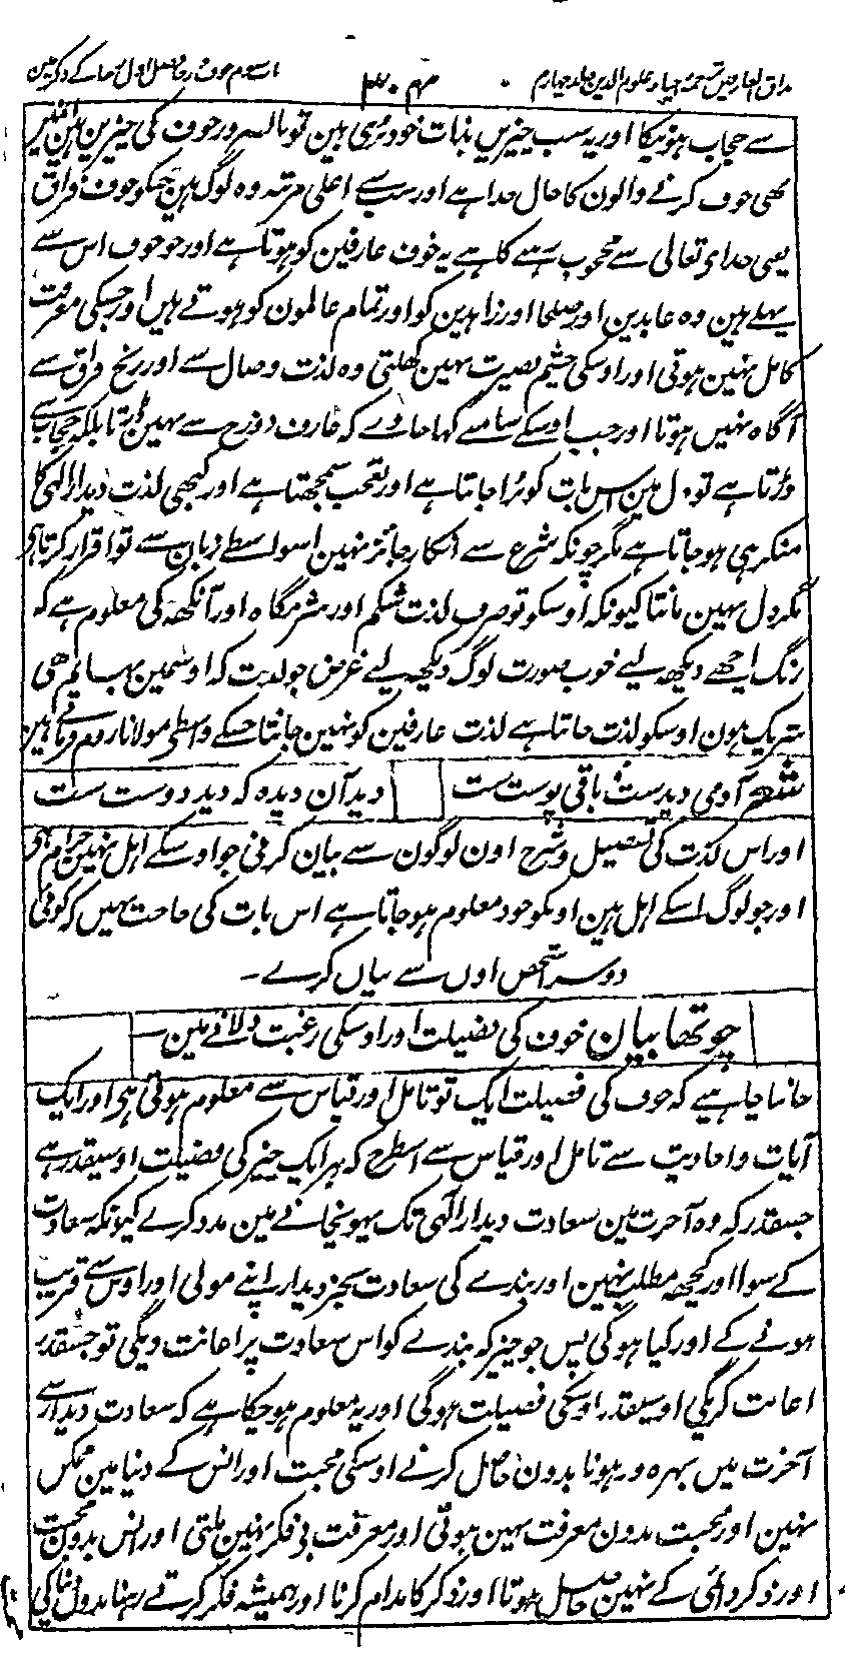 مذاق العارفین ترجمہ احیاء علوم الدین جلد چہارم
سے حجاب ہونیکا اور یہ سب چیزیں بذات خود بُری ہین تو بالضرور خوف کی چیزین ہین
بھی خوف کرنے والون کا حال جدا ہے اور سب سے اعلی مرتبہ وہ لوگ ہین جنکو خوف فراق
یعنی خدای تعالی سے محجوب رہنے کا ہے یہ خوف عارفین کو ہوتا ہے اور جو خوف اس سے
پہلے ہین وہ عابدین اور صلحا اور زاہدین کو اور تمام عالمون کو ہوتے ہیں اور جسکی معرفت
کامل نہین ہوتی اور اوسکی چشم بصیرت نہین کھلتی وہ لذت وصال سے اور رنج فراق سے
آگاہ نہیں ہوتا اور جب اوسکے سامنے کہا جاوے کہ عارف دوزخ سے نہین ڈرتا بلکہ حجاب سے
ڈرتا ہے تو دل مین اس بات کو بُرا جانتا ہے اور تعجب سمجھتا ہے اور کبھی لذت دیدار الٰہی کا
منکر ہی ہو جاتا ہے مگر چونکہ شرع سے انکار جائز نہین اسواسطے زبان سے تو اقرار کرتا ہی
مگر دل نہین مانتا کیونکہ اوسکو تو صرف لذت شکم اور شرمگاہ اور آنکھ کی معلوم ہے کہ
رنگ اچھے دیکھ لیے خوب صورت لوگ دیکھ لیے غرض جو لذت کہ اوسمین بہائم بھی
شریک ہون اوسکو لذت جانتا ہے لذت عارفین کو نہین جانتا جسکے واسطے مولانا روم فرماتے ہین
شعر آدمی دیدست باقی پوست ست دید آن دیدہ کہ دید دوست ست
اور اس لذت کی تفصیل و شرح اون لوگون سے بیان کرنی جو اوسکے اہل نہین حرام ہی
اور جو لوگ اسکے اہل ہین اونکو خود معلوم ہو جاتا ہے اس بات کی حاجت نہین کہ کوئی
دوسرا شخص اون سے بیان کرے۔
چوتھا بیان خوف کی فضیلت اور اوسکی رغبت دلانے مین
جاننا چاہیے کہ خوف کی فضیلت ایک تو تامل اور قیاس سے معلوم ہوتی ہی اور ایک
آیات و احادیث سے تامل اور قیاس سے اسطرح کہ ہر ایک چیز کی فضیلت اوسیقدر ہے
جسقدر کہ وہ آخرت مین سعادت دیدار الٰہی تک پہونچانے مین مدد کرے کیونکہ سعادت
کے سوا اور کچھ مطلب نہین اور بندے کی سعادت بجز دیدار اپنے مولی اور اوس سے قریب
ہونے کے اور کیا ہوگی پس جو چیز کہ بندے کو اس سعادت پر اعانت دیگی تو جسقدر
اعانت کریگی اوسیقدر اوسکی فضیلت ہوگی اور یہ معلوم ہو چکا ہے کہ سعادت دیدار سے
آخرت میں بہرہ ور ہونا بدون حاصل کرنے اوسکی محبت اور انس کے دنیا مین ممکن
نہین اور محبت بدون معرفت نہین ہوتی اور معرفت بی فکر نہین ملتی اور انس بدون محبت
اور ذکر دائمی کے نہین حاصل ہوتا اور ذکر کا مدام کرنا اور ہمیشہ فکر کرتے رہنا بدون